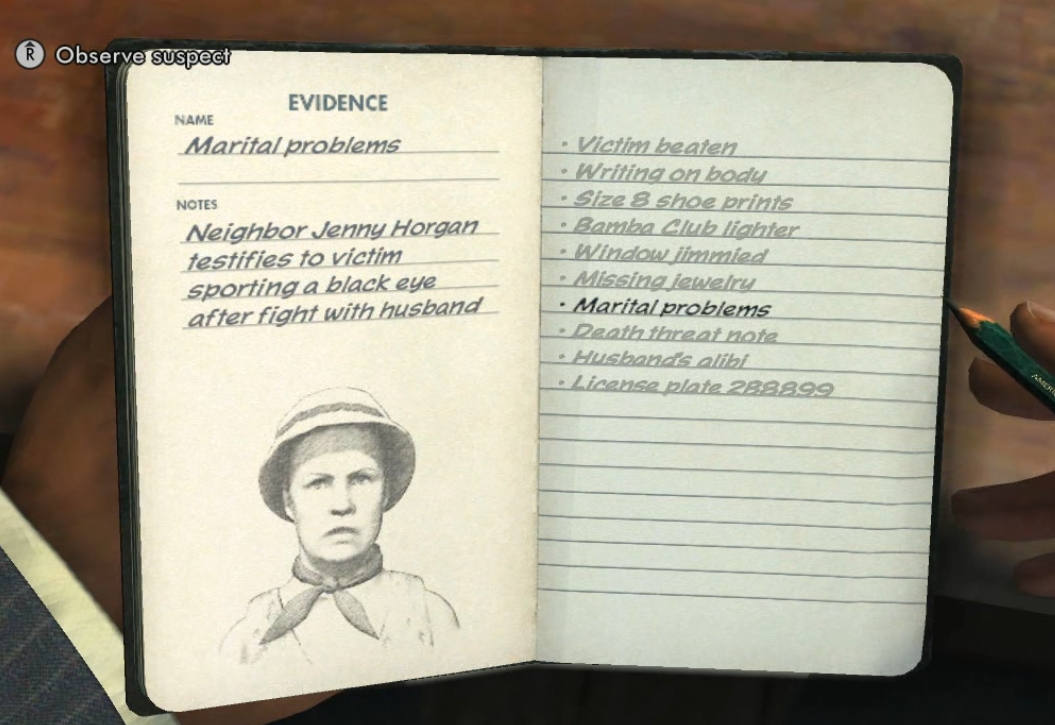 R Observe suspect
EVIDENCE
NAME
Marital problems
NOTES
Neighbor Jenny Horgan
testifies to victim
sporting a black eye
after fight with husband
· Victim beaten
· Writing on body
· Size 8 shoe prints
· Bamba Club lighter
· Window jimmied
· Missing jewelry
· Marital problems
· Death threat note
· Husband's alibi
· License plate 288899